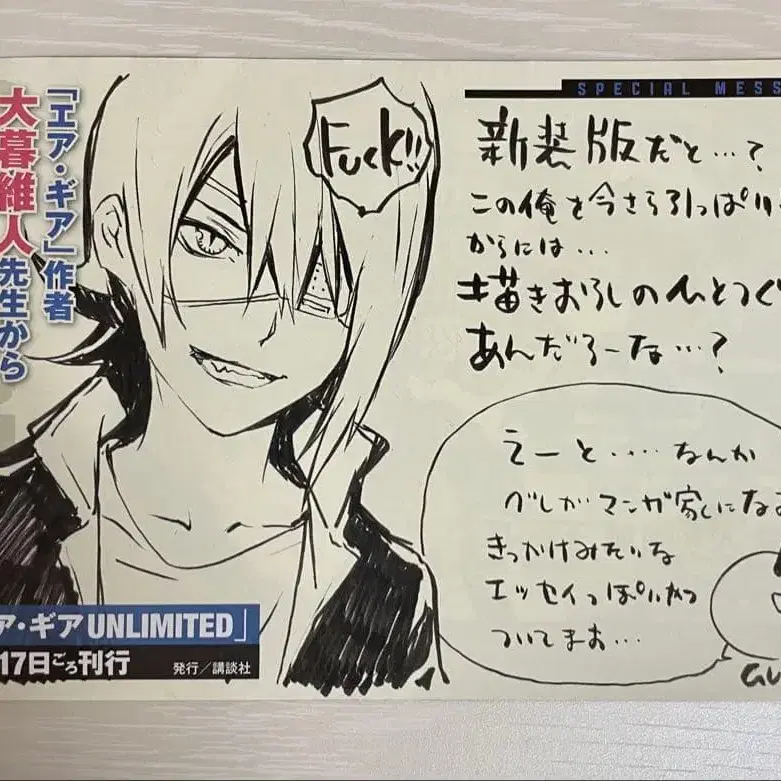 「エア・ギア」作者
大暮維人先生から
Fuck!!
SPECIAL MESS
新装版だと…?
この俺を今さら引っぱり
からには…
描きおろしのひとつ
あんだろーな…?
えーと‥‥なんか
ベしがマンガ家になる
きっかけみたいな
エッセイっぽいやつ
ついてまあ…
ア・ギア UNLIMITED」
17日ごろ刊行
発行/講談社